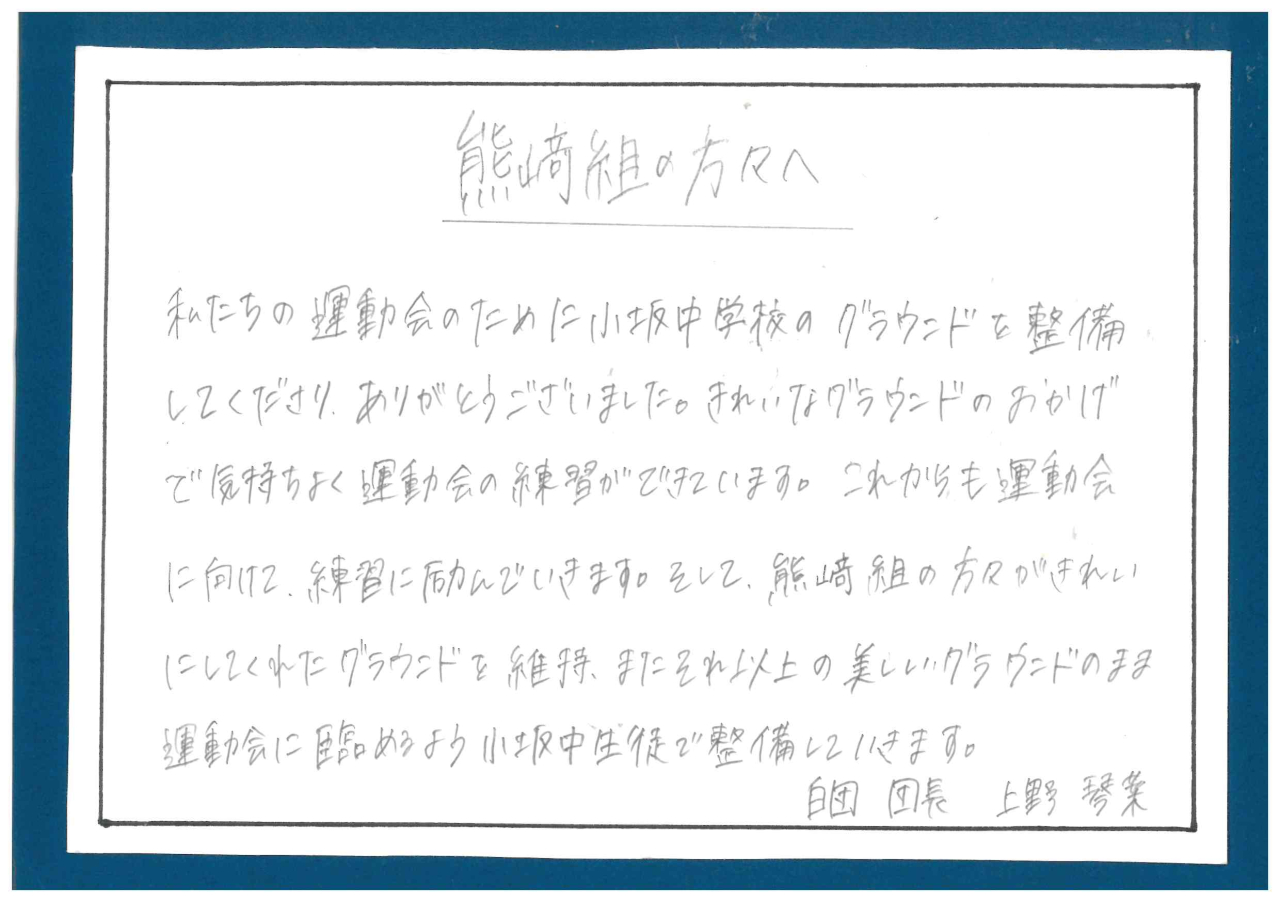 熊﨑組の方々へ
私たちの運動会のために小坂中学校のグラウンドを整備
してくださり、ありがとうございました。きれいなグラウンドのおかげ
で気持ちよく運動会の練習ができています。これからも運動会
に向けて、練習に励んでいきます。そして、熊﨑組の方々がきれい
にしてくれたグラウンドを維持、またそれ以上の美しいグラウンドのまま
運動会に臨めるよう小坂中生徒で整備していきます。
白団 団長 上野 琴葉